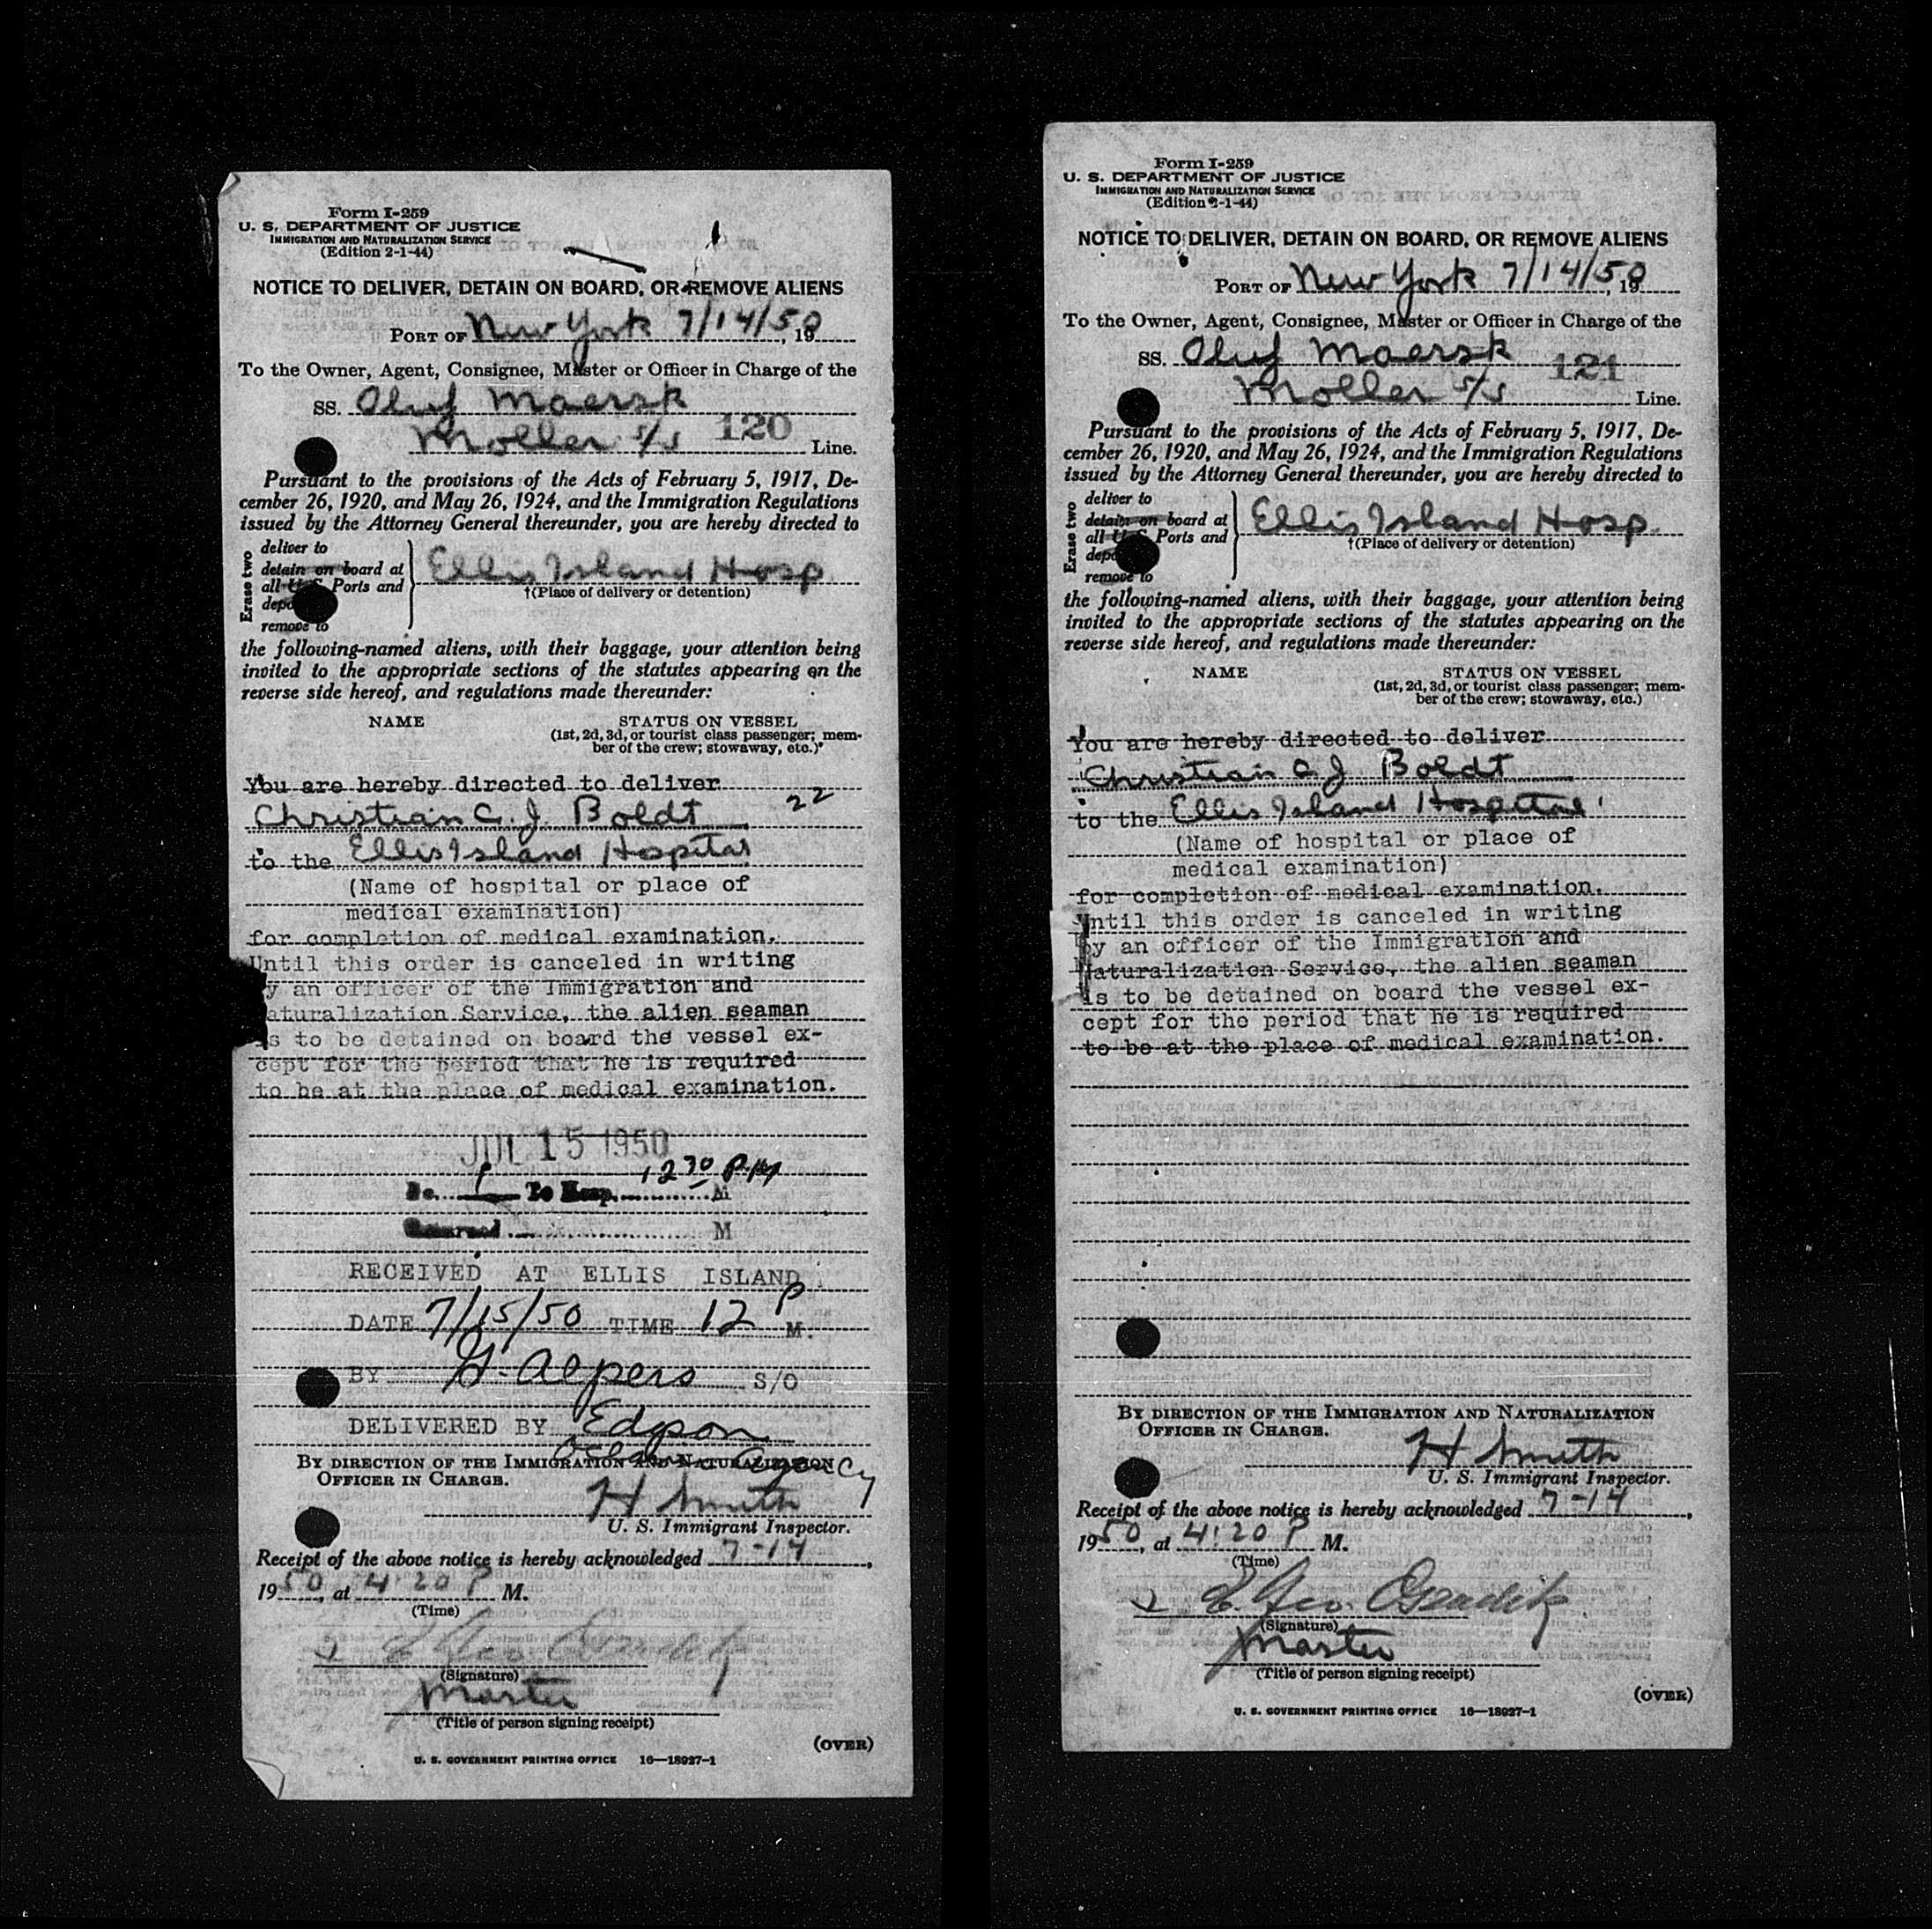 Form I-259
U. S. DEPARTMENT OF JUSTICE
IMMIGRATION AND NATURALIZATION SERVICE
(Edition 2-1-44)
NOTICE TO DELIVER, DETAIN ON BOARD, OR REMOVE ALIENS
PORT OF New York 7/14/50, 19
To the Owner, Agent, Consignee, Master or Officer in Charge of the
SS. Oluf Maersk
Moller S/S 120 Line.
Pursuant to the provisions of the Acts of February 5, 1917, De-
cember 26, 1920, and May 26, 1924, and the Immigration Regulations
issued by the Attorney General thereunder, you are hereby directed to
Erase two
deliver to
detain on board at
all U.S. Ports and
remove to
Ellis Island Hosp
†(Place of delivery or detention)
the following-named aliens, with their baggage, your attention being
invited to the appropriate sections of the statutes appearing on the
reverse side hereof, and regulations made thereunder:
NAME STATUS ON VESSEL
(1st, 2d, 3d, or tourist class passenger; mem-
ber of the crew; stowaway, etc.)
You are hereby directed to deliver
Christian C. J. Boldt 22
to the Ellis Island Hospital
(Name of hospital or place of
medical examination)
for completion of medical examination.
Until this order is canceled in writing
y an officer of the Immigration and
aturalization Service, the alien seaman
is to be detained on board the vessel ex-
cept for the period that he is required
to be at the place of medical examination.
JUL 15 1950
No. 1 To Hosp. 12 30 PM M
Returned M
RECEIVED AT ELLIS ISLAND
DATE 7/15/50 TIME 12 P M.
BY H. Alpers S/O
DELIVERED BY Edson
Agency
BY DIRECTION OF THE IMMIGRATION AND NATURALIZATION
OFFICER IN CHARGE.
H Smith
U. S. Immigrant Inspector.
Receipt of the above notice is hereby acknowledged 7-14,
1950, at 4:20 P M.
(Time)
(Signature)
Master
(Title of person signing receipt)
(OVER)
U. S. GOVERNMENT PRINTING OFFICE 16—18927-1
Form I-259
U. S. DEPARTMENT OF JUSTICE
IMMIGRATION AND NATURALIZATION SERVICE
(Edition 2-1-44)
NOTICE TO DELIVER, DETAIN ON BOARD, OR REMOVE ALIENS
PORT OF New York 7/14/50, 19
To the Owner, Agent, Consignee, Master or Officer in Charge of the
SS. Oluf Maersk 121
Moller S/S Line.
Pursuant to the provisions of the Acts of February 5, 1917, De-
cember 26, 1920, and May 26, 1924, and the Immigration Regulations
issued by the Attorney General thereunder, you are hereby directed to
Erase two
deliver to
detain on board at
all U.S. Ports and
remove to
Ellis Island Hosp.
†(Place of delivery or detention)
the following-named aliens, with their baggage, your attention being
invited to the appropriate sections of the statutes appearing on the
reverse side hereof, and regulations made thereunder:
NAME STATUS ON VESSEL
(1st, 2d, 3d, or tourist class passenger; mem-
ber of the crew; stowaway, etc.)
You are hereby directed to deliver
Christian C J Boldt
to the Ellis Island Hospital
(Name of hospital or place of
medical examination)
for completion of medical examination.
Until this order is canceled in writing
by an officer of the Immigration and
Naturalization Service, the alien seaman
is to be detained on board the vessel ex-
cept for the period that he is required
to be at the place of medical examination.
BY DIRECTION OF THE IMMIGRATION AND NATURALIZATION
OFFICER IN CHARGE.
H Smith
U. S. Immigrant Inspector.
Receipt of the above notice is hereby acknowledged 7-14,
1950, at 4:20 P M.
(Time)
(Signature)
Master
(Title of person signing receipt)
(OVER)
U. S. GOVERNMENT PRINTING OFFICE 16—18927-1